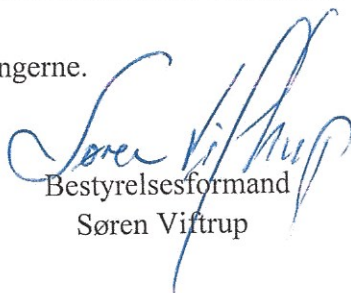 ngerne.
Søren Viftrup
Bestyrelsesformand
Søren Viftrup